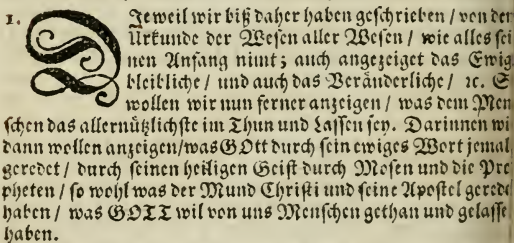 1. DJeweil wir biß daher haben geschrieben / von der
Urkunde der Wesen aller Wesen / wie alles sei
nen Anfang nimt; auch angezeiget das Ewig
bleibliche / und auch das Veränderliche / ꝛc. S
wollen wir nun ferner anzeigen / was dem Men
schen das allernützlichste im Thun und Lassen sey. Darinnen wi
dann wollen anzeigen/was GOtt durch sein ewiges Wort jemal
geredet / durch seinen heiligen Geist durch Mosen und die Pro
pheten / so wohl was der Mund Christi und seine Apostel gerede
haben / was GOTT wil von uns Menschen gethan und gelasse
haben.